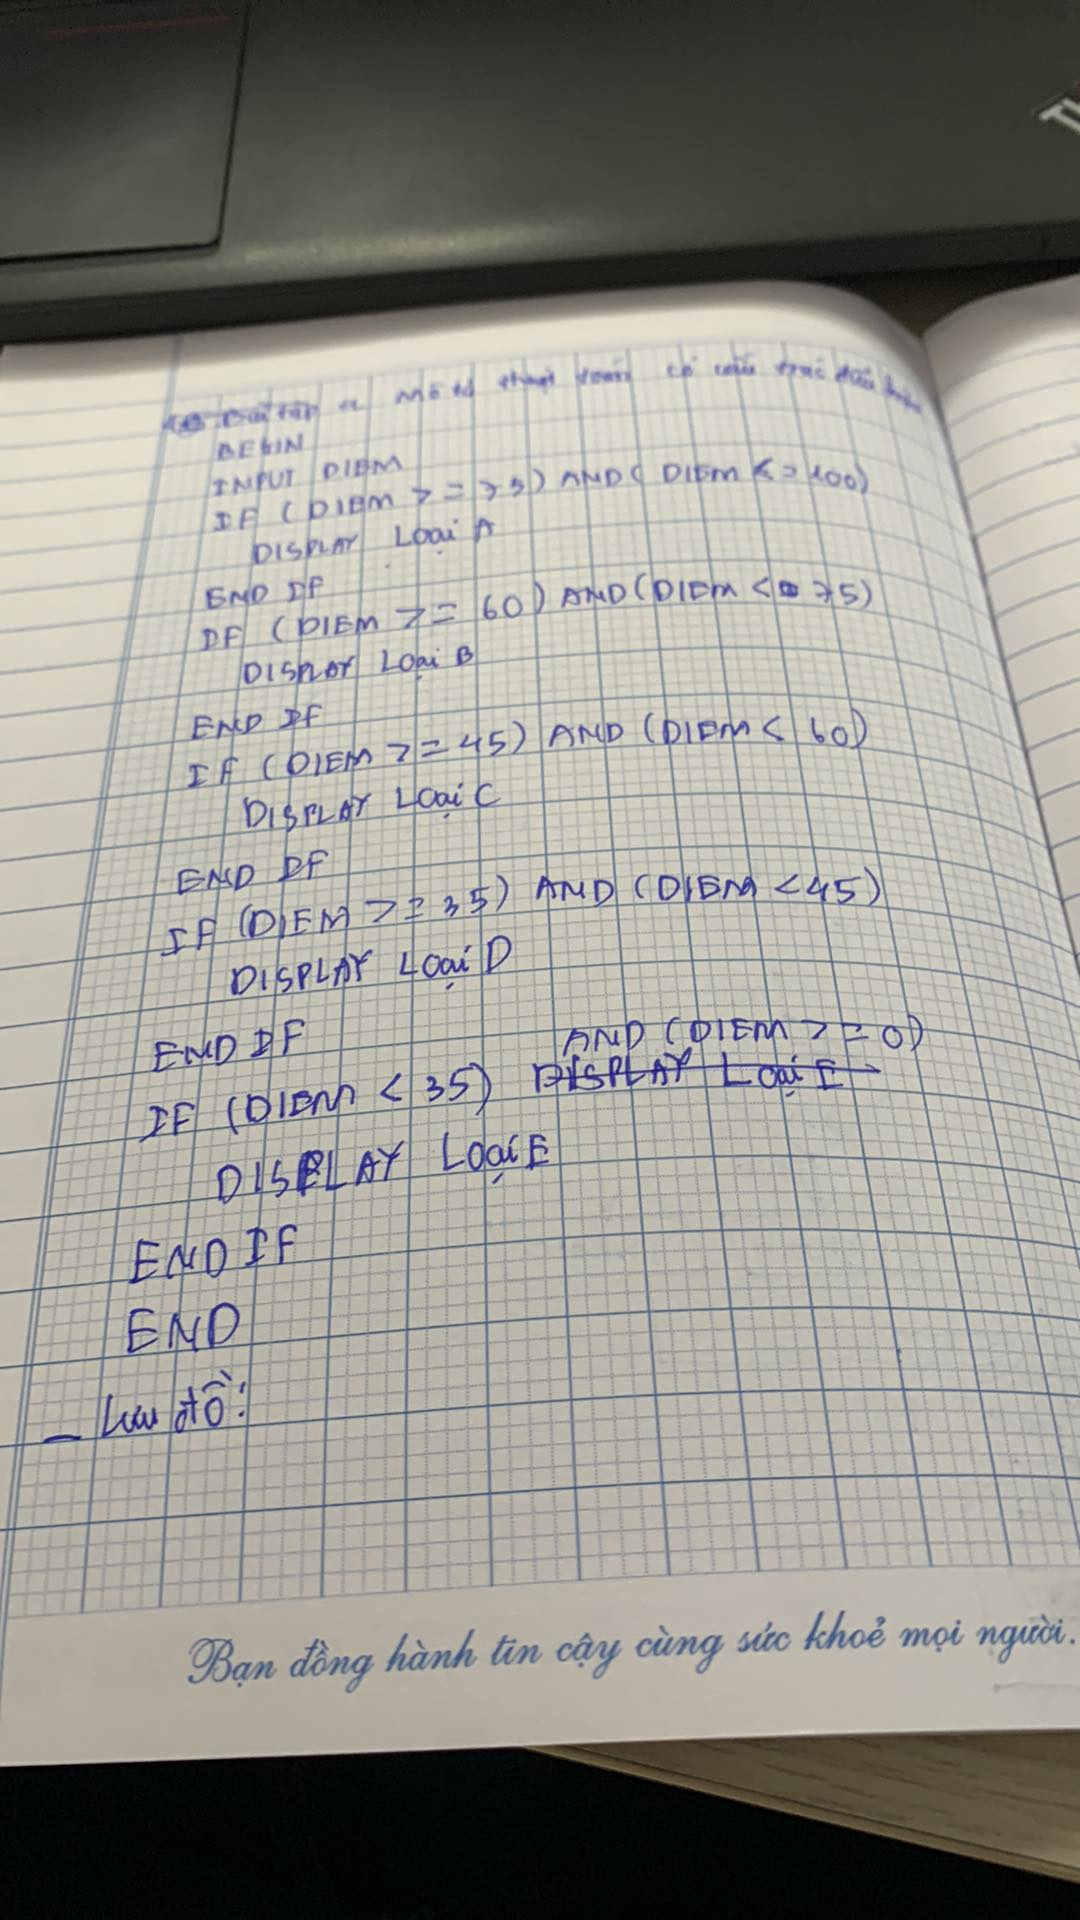 Bài tập : Mô tả thuật toán có cấu trúc điều kiện
BEGIN
INPUT DIEM
IF (DIEM >= 75) AND (DIEM <= 100)
DISPLAY Loại A
END IF
IF (DIEM >= 60) AND (DIEM < 75)
DISPLAY Loại B
END IF
IF (DIEM >= 45) AND (DIEM < 60)
DISPLAY Loại C
END IF
IF (DIEM >= 35) AND (DIEM < 45)
DISPLAY Loại D
END IF
AND (DIEM >= 0)
IF (DIEM < 35) DISPLAY Loại E
DISPLAY Loại E
END IF
END
– Lưu đồ:
Bạn đồng hành tin cậy cùng sức khoẻ mọi người.